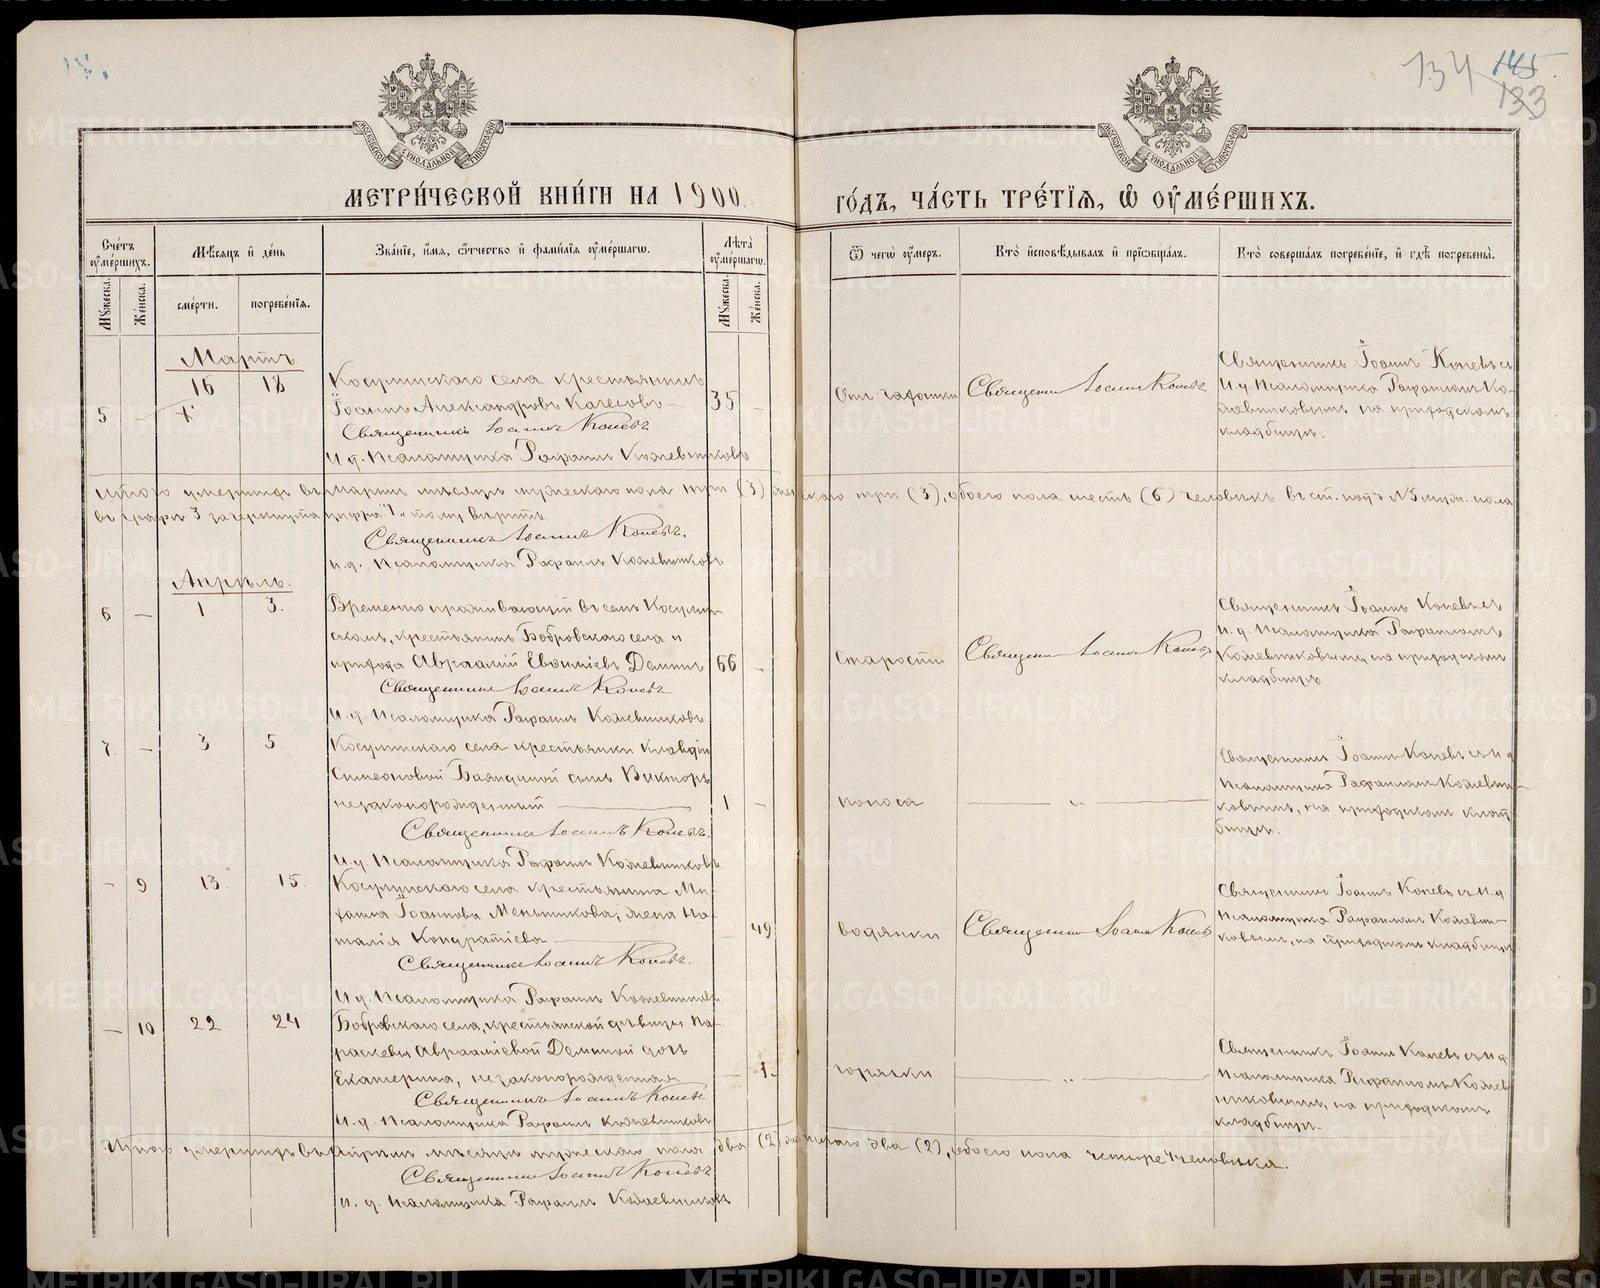 134 145
133
МОСКОВСКОЙ СѴНОДАЛЬНОЙ ТИПОГРАФІИ
МОСКОВСКОЙ СѴНОДАЛЬНОЙ ТИПОГРАФІИ
МЕТРИ́ЧЕСКОЙ КНИ́ГИ НА 1900 ГО́ДЪ, ЧА́СТЬ ТРЕ́ТІѦ, Ѽ ОУМЕ́РШИХЪ.
Сче́тъ оумершихъ.
Мѣ́сяцъ и҆ день
Зва́ніе, и҆мя, ѻ҆́тчество и҆ фами́лія оумершагѡ.
Лѣта̀ оуме́ршагѡ.
Ѿ чегѡ̀ оу́меръ.
Кто̀ и҆сповѣ́дывалъ и҆ пріѻбща́лъ.
Кто̀ соверша́лъ погребе́ніе, и҆ гдѣ̀ погребены̀.
Мꙋжеска.
Же́нска.
сме́рти.
погребе́нія.
Мꙋжеска.
Же́нска.
Мартъ
5 - 16 18
Косулинскаго села крестьянинъ
Іоаннъ Александровъ Качесовъ
35 -
Священникъ Іоаннъ Коневъ
И. д. Псаломщика Рафаилъ Кожевниковъ
От чахотки
Священникъ Іоаннъ Коневъ
Священникъ Іоаннъ Коневъ съ
И. д. Псаломщика Рафаиломъ Ко-
жевниковымъ, на приходскомъ
кладбищѣ.
Итого умершихъ въ Мартѣ мѣсяцѣ мужескаго пола три (3) женскаго три (3), обоего пола шесть (6) человѣкъ. Въ ст. подъ №5 муж. пола
въ графѣ 3 зачеркнута цифра "1" тому вѣрить.
Священникъ Іоаннъ Коневъ.
И. д. Псаломщика Рафаилъ Кожевниковъ
Апрѣль.
6 - 1 3.
Временно проживающій въ селѣ Косулин-
скомъ, крестьянинъ Бобровскаго села и
прихода Авраамій Евѳиміевъ Деминъ
66 -
Священникъ Іоаннъ Коневъ
И. д. Псаломщика Рафаилъ Кожевниковъ
Старости
Священникъ Іоаннъ Коневъ
Священникъ Іоаннъ Коневъ съ
И. д. Псаломщика Рафаиломъ
Кожевниковымъ, на приходскомъ
кладбищѣ
7. - 3 5
Косулинскаго села крестьянки Клавдіи
Симеоновой Баяндиной сынъ Викторъ
незаконорожденный
1 -
Священникъ Іоаннъ Коневъ.
И. д. Псаломщика Рафаилъ Кожевниковъ
поноса
Священникъ Іоаннъ Коневъ съ И. д
Псаломщика Рафаиломъ Кожевни-
ковымъ, на приходскомъ клад-
бищѣ.
- 9 13. 15.
Косулинскаго села крестьянина Ми-
хаила Іоаннова Меньшикова, жена На-
талія Кондратіева
49
Священникъ Іоаннъ Коневъ.
И. д. Псаломщика Рафаилъ Кожевниковъ
водянки
Священникъ Іоаннъ Коневъ
Священникъ Іоаннъ Коневъ съ И. д
Псаломщика Рафаиломъ Кожевни-
ковымъ, на приходскомъ кладбищѣ
- 10 22 24
Бобровскаго села, крестьянской дѣвицы Па-
раскевы Авраамiевой Деминой дочь
Екатерина, незаконорожденная
- 1.
Священникъ Іоаннъ Коневъ
И. д. Псаломщика Рафаилъ Кожевниковъ
горячки
Священникъ Іоаннъ Коневъ съ И. д
Псаломщика Рафаиломъ Кожев-
никовымъ, на приходскомъ
кладбищѣ.
Итого умершихъ въ Апрѣлѣ мѣсяцѣ мужескаго пола два (2) женскаго два (2), обоего пола четыре 4 человѣка.
Священникъ Іоаннъ Коневъ
И. д. Псаломщика Рафаилъ Кожевниковъ
METRIKI.GASO-URAL.RU